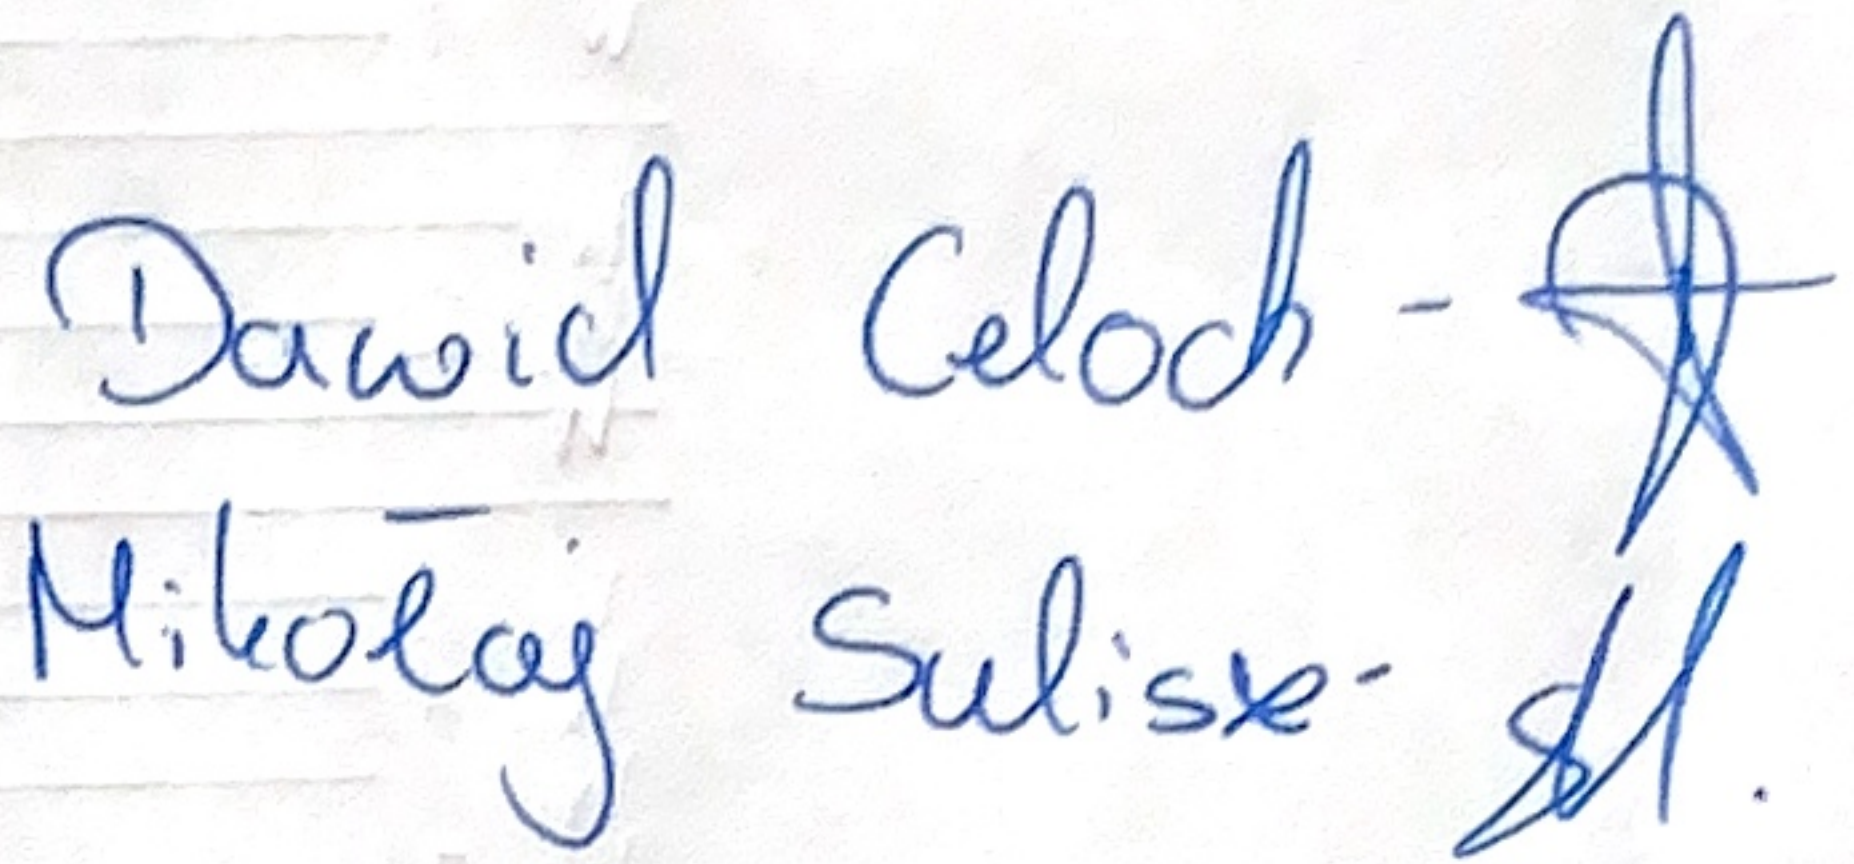 Dawid Celoch -
Mikołaj Sulisz -